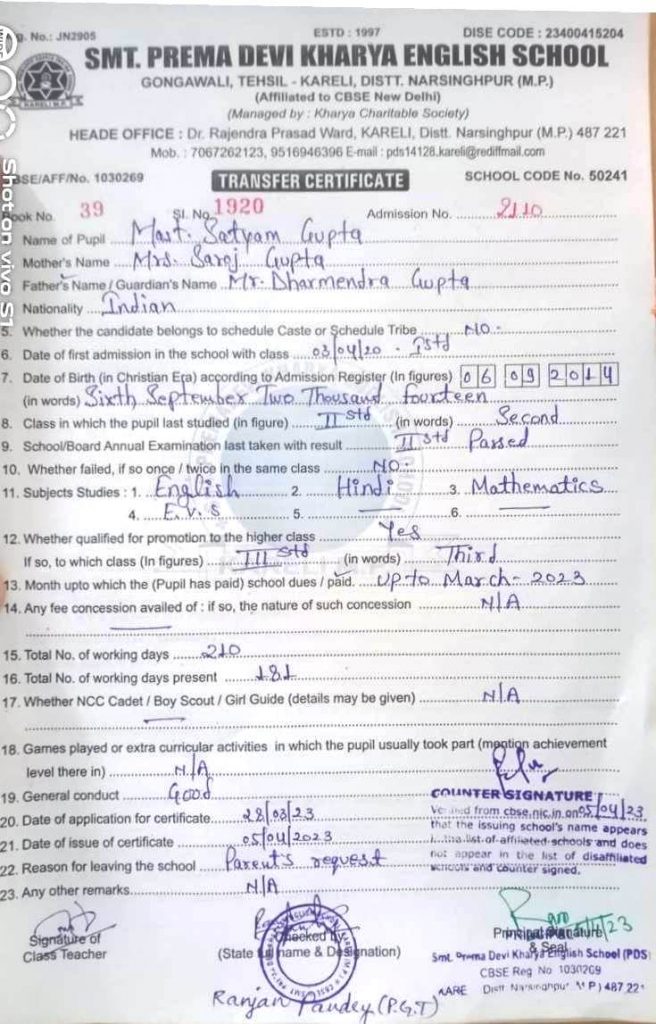 g. No.: JN2905 ESTD : 1997 DISE CODE : 23400415204
SMT. PREMA DEVI KHARYA ENGLISH SCHOOL
GONGAWALI, TEHSIL - KARELI, DISTT. NARSINGHPUR (M.P.)
(Affiliated to CBSE New Delhi)
(Managed by : Kharya Charitable Society)
HEADE OFFICE : Dr. Rajendra Prasad Ward, KARELI, Distt. Narsinghpur (M.P.) 487 221
Mob. : 7067262123, 9516946396 E-mail : pds14128.kareli@rediffmail.com
BSE/AFF/No. 1030269 TRANSFER CERTIFICATE SCHOOL CODE No. 50241
Book No. 39 Sl. No. 1920 Admission No. 2110
Name of Pupil Mast. Satyam Gupta
Mother's Name Mrs. Saroj Gupta
Father's Name / Guardian's Name Mr. Dharmendra Gupta
Nationality Indian
5. Whether the candidate belongs to schedule Caste or Schedule Tribe NO.
6. Date of first admission in the school with class 03/04/20 - Istd
7. Date of Birth (in Christian Era) according to Admission Register (In figures) 06 09 2014
(in words) Sixth September Two Thousand fourteen
8. Class in which the pupil last studied (in figure) II std (in words) Second
9. School/Board Annual Examination last taken with result II std Passed
10. Whether failed, if so once / twice in the same class NO.
11. Subjects Studies : 1. English 2. Hindi 3. Mathematics
4. E.V.S 5. — 6. —
12. Whether qualified for promotion to the higher class Yes
If so, to which class (In figures) III std (in words) Third
13. Month upto which the (Pupil has paid) school dues / paid. Up to March - 2023
14. Any fee concession availed of : if so, the nature of such concession N/A
15. Total No. of working days 210
16. Total No. of working days present 181
17. Whether NCC Cadet / Boy Scout / Girl Guide (details may be given) N/A
18. Games played or extra curricular activities in which the pupil usually took part (mention achievement
level there in) N/A
19. General conduct Good
COUNTER SIGNATURE
20. Date of application for certificate 28/03/23
from cbse.nic.in on 05/04/23
that the issuing school's name appears
21. Date of issue of certificate 05/04/2023
list of affiliated schools and does
not appear in the list of disaffiliated
22. Reason for leaving the school Parent's request
schools and counter signed.
23. Any other remarks N/A
Signature of
Class Teacher
Checked by
(State full name & Designation)
Principal Signature
& Seal
Smt. Prema Devi Kharya English School (PDS
CBSE Reg No 1030269
KARE Distt Narsinghpur M P) 487 22
Ranjan Pandey (P.G.T)
Shot on vivo S1